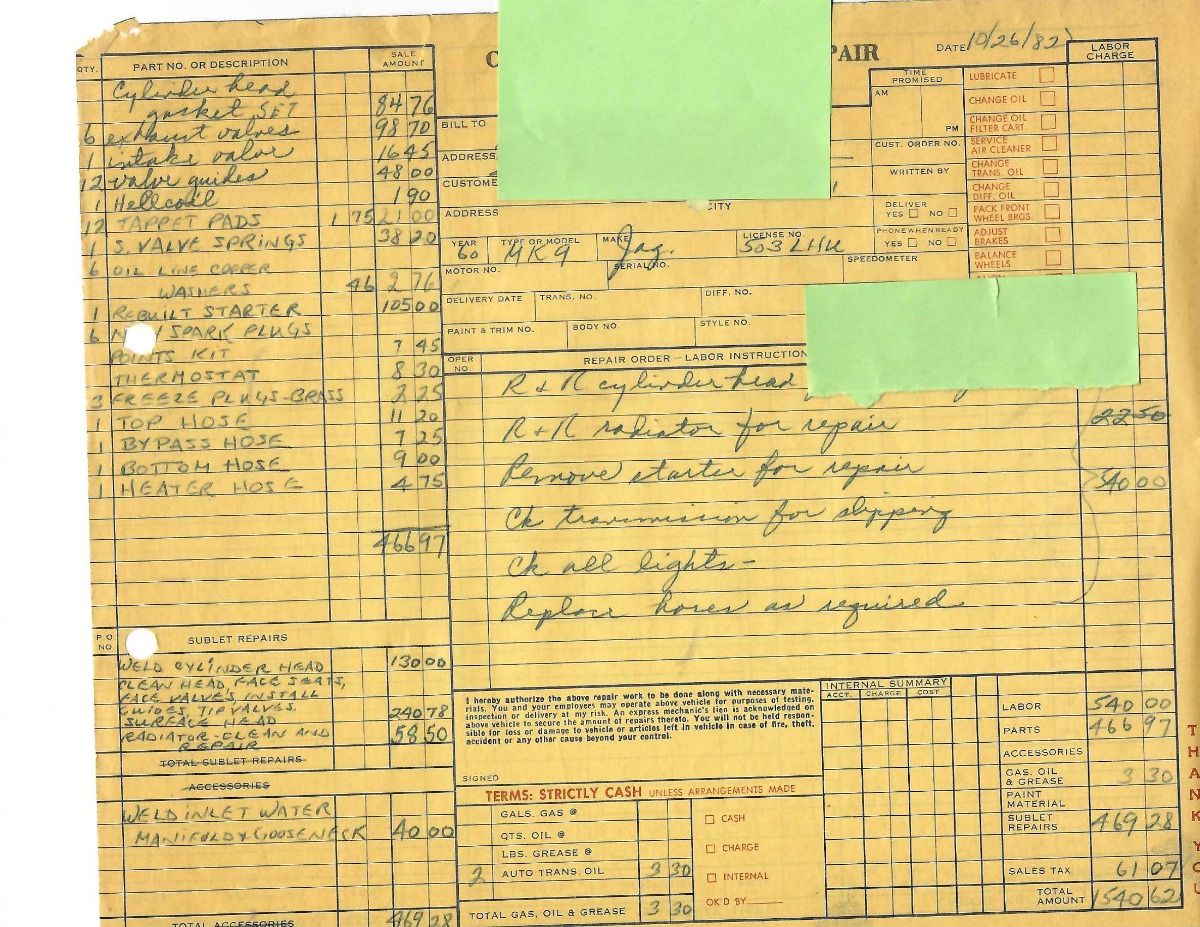 PAIR
DATE 10/26/82
QTY. PART NO. OR DESCRIPTION SALE AMOUNT
Cylinder head
gasket SET 84 76
6 exhaust valves 98 70
1 intake valve 16 45
12 valve guides 48 00
1 Helicoil 1 90
12 TAPPET PADS 1 75 21 00
1 S. VALVE SPRINGS 38 20
6 OIL LINE COPPER
WASHERS 46 2 76
1 REBUILT STARTER 105 00
6 SPARK PLUGS
POINTS KIT 7 45
THERMOSTAT 8 30
3 FREEZE PLUGS-BRASS 2 25
1 TOP HOSE 11 20
1 BYPASS HOSE 7 25
1 BOTTOM HOSE 9 00
1 HEATER HOSE 4 75
466 97
P O NO SUBLET REPAIRS
WELD CYLINDER HEAD 130 00
CLEAN HEAD, FACE SEATS,
FACE VALVE'S INSTALL
GUIDES, TIP VALVES. 240 78
SURFACE HEAD
RADIATOR-CLEAN AND 58 50
REPAIR
TOTAL SUBLET REPAIRS
ACCESSORIES
WELD INLET WATER
MANIFOLD & GOOSENECK 40 00
TOTAL ACCESSORIES 469 28
BILL TO
ADDRESS
CUSTOME
ADDRESS CITY
YEAR 60 TYPE OR MODEL MK9 MAKE Jag. LICENSE NO. 503 LHU
MOTOR NO. SERIAL NO. SPEEDOMETER
DELIVERY DATE TRANS. NO. DIFF. NO.
PAINT & TRIM NO. BODY NO. STYLE NO.
TIME PROMISED
AM
PM
CUST. ORDER NO.
WRITTEN BY
DELIVER
YES NO
PHONE WHEN READY
YES NO
LABOR CHARGE
LUBRICATE
CHANGE OIL
CHANGE OIL FILTER CART.
SERVICE AIR CLEANER
CHANGE TRANS. OIL
CHANGE DIFF. OIL
PACK FRONT WHEEL BRGS.
ADJUST BRAKES
BALANCE WHEELS
OPER NO. REPAIR ORDER — LABOR INSTRUCTION
R & R cylinder head
R & R radiator for repair 22 50
Remove starter for repair 540 00
Ck transmission for slipping
Ck all lights -
Replace hoses as required
I hereby authorize the above repair work to be done along with necessary mate-
rials. You and your employees may operate above vehicle for purposes of testing,
inspection or delivery at my risk. An express mechanic's lien is acknowledged on
above vehicle to secure the amount of repairs thereto. You will not be held respon-
sible for loss or damage to vehicle or articles left in vehicle in case of fire, theft,
accident or any other cause beyond your control.
SIGNED
TERMS: STRICTLY CASH UNLESS ARRANGEMENTS MADE
GALS. GAS @
QTS. OIL @
LBS. GREASE @
2 AUTO TRANS OIL 3 30
TOTAL GAS, OIL & GREASE 3 30
CASH
CHARGE
INTERNAL
OK'D BY
INTERNAL SUMMARY
ACCT. CHARGE COST
LABOR 540 00
PARTS 466 97
ACCESSORIES
GAS, OIL & GREASE 3 30
PAINT MATERIAL
SUBLET REPAIRS 469 28
SALES TAX 61 07
TOTAL AMOUNT 1540 62
THANK YOU